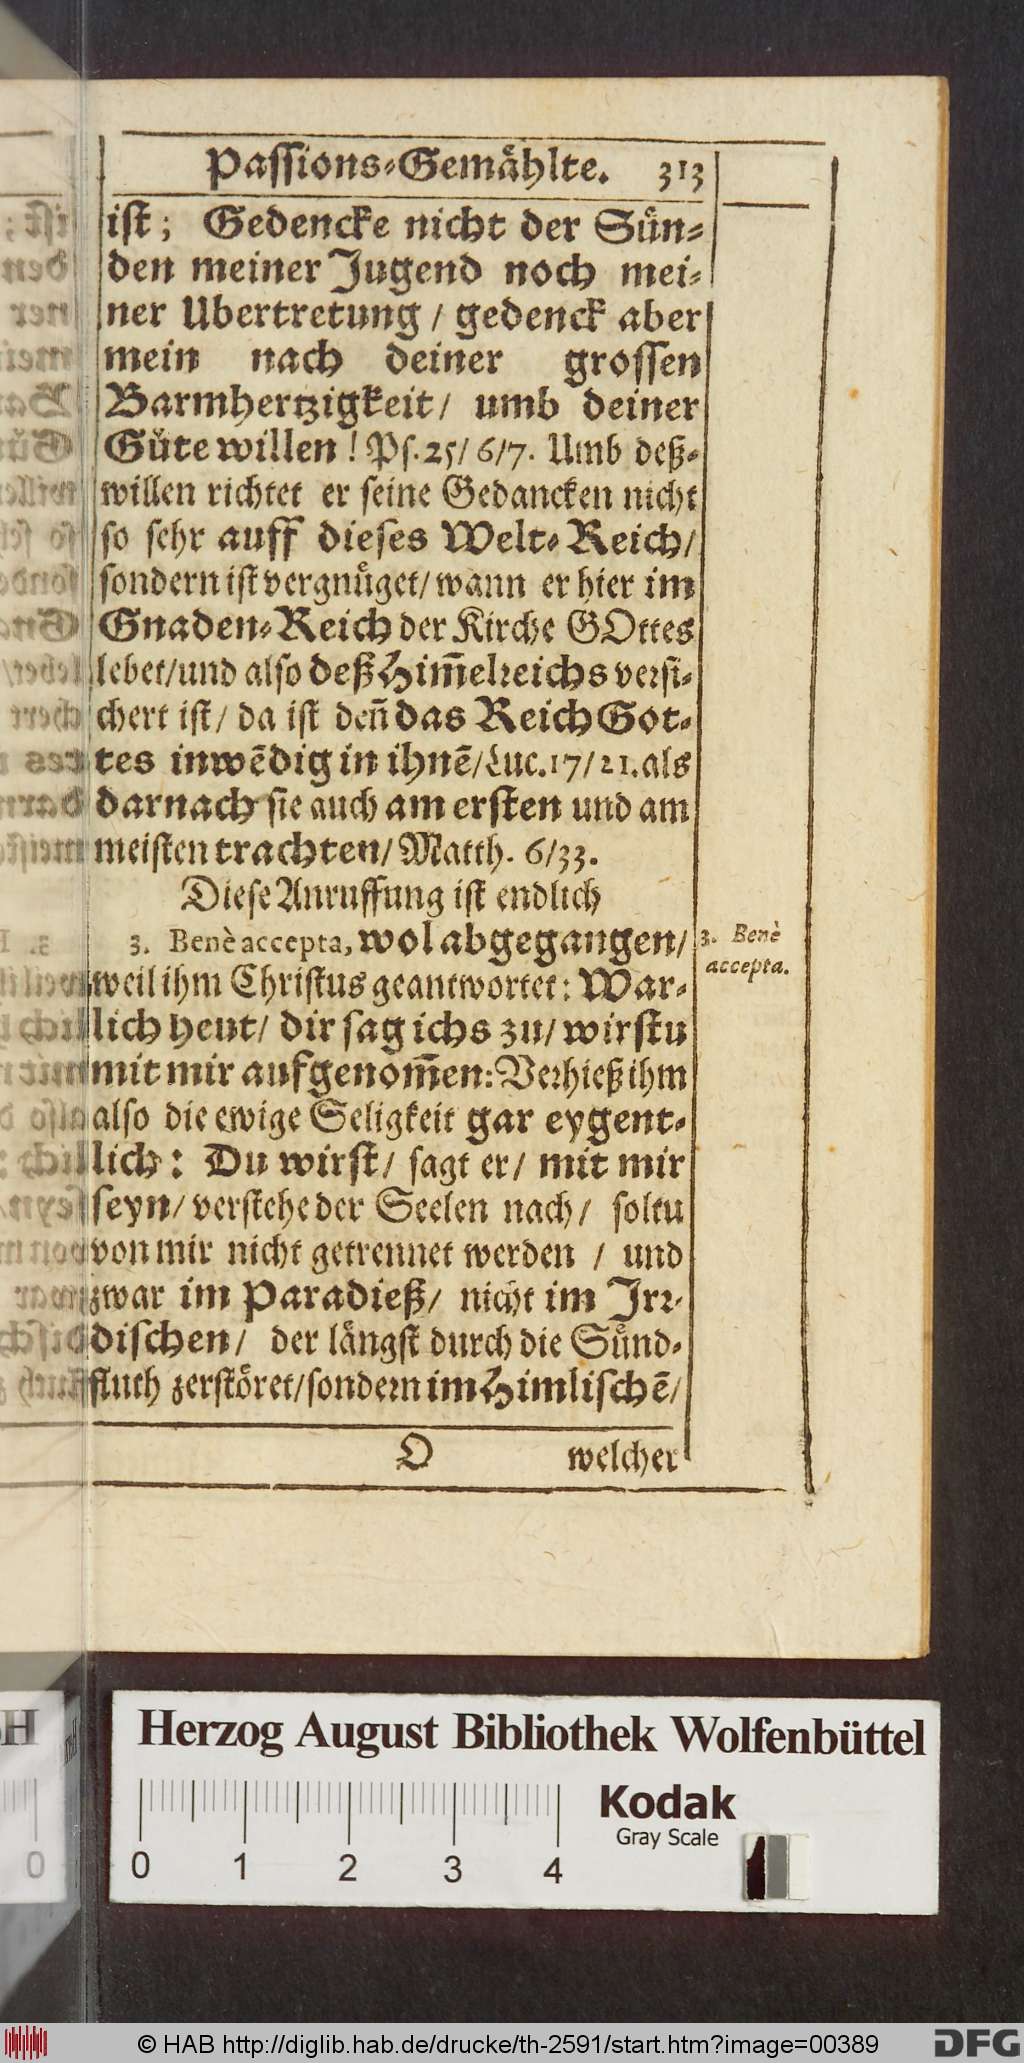 Passions-Gemählte. 313
ist; Gedencke nicht der Sün-
den meiner Jugend noch mei-
ner Ubertretung / gedenck aber
mein nach deiner grossen
Barmhertzigkeit/ umb deiner
Güte willen! Ps. 25/6/7. Umb deß-
willen richtet er seine Gedancken nicht
so sehr auff dieses Welt-Reich/
sondern ist vergnüget/ wann er hier im
Gnaden-Reich der Kirche GOttes
lebet/und also deß Him̄elreichs versi-
chert ist/ da ist den̄ das Reich Got-
tes inwēdig in ihnē/Luc. 17/21. als
darnach sie auch am ersten und am
meisten trachten/ Matth. 6/33.
Diese Anruffung ist endlich
3. Benè accepta, wol abgegangen/
weil ihm Christus geantwortet: War-
lich heut/ dir sag ichs zu/ wirstu
mit mir aufgenom̄en: Verhieß ihm
also die ewige Seligkeit gar eygent-
lich: Du wirst/ sagt er/ mit mir
seyn/ verstehe der Seelen nach/ soltu
von mir nicht getrennet werden / und
zwar im Paradieß/ nicht im Irr-
dischen/ der längst durch die Sünd-
fluth zerstöret/sondern im Himlischē/
O welcher
3. Benè
accepta.
Herzog August Bibliothek Wolfenbüttel
Kodak
Gray Scale
0 1 2 3 4
0
© HAB http://diglib.hab.de/drucke/th-2591/start.htm?image=00389
DFG